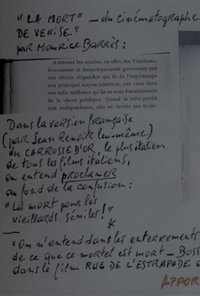 "LA MORT" — du cinématographe
DE VENISE"
par Maurice Barrès :
A travers les siècles, en effet, les Vénitiens,
doucement et despotiquement gouvernés par
une étroite oligarchie qui fit de l'espionnage
son principal moyen intérieur, ont vécu dans
une telle mollesse qu'ils se sont désaccoutumés
de la chose publique. Quand la ville perdit
son indépendance, elle
Dans la version française
(par Jean Renoir lui-même)
du CARROSSE D'OR, le plus italien
de tous les films italiens,
on entend proclamer
au fond de la confusion :
"La mort pour les
vieillards séniles !"
*
"On n'entend dans les enterrements
de ce que ce mortel est mort — BOSS
dans le film RUE DE L'ESTRAPADE
APPOR